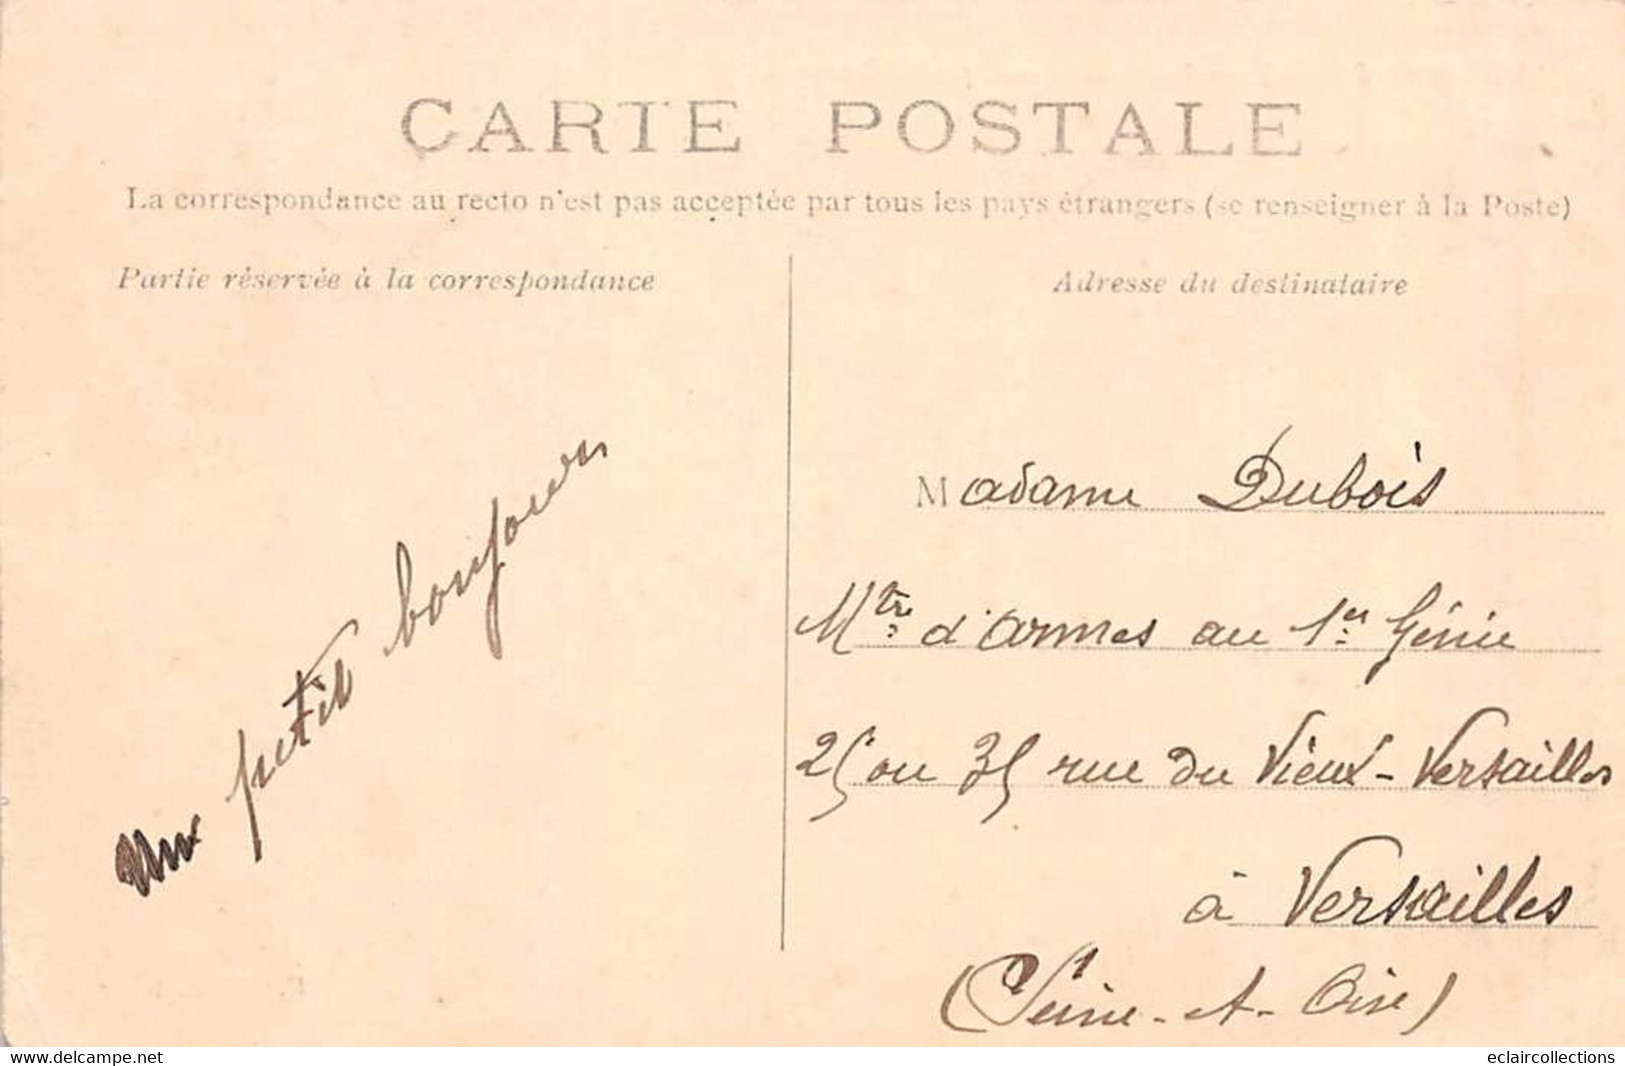 CARTE POSTALE
La correspondance au recto n'est pas acceptée par tous les pays étrangers (se renseigner à la Poste)
Partie réservée à la correspondance
Adresse du destinataire
un petit bonjour
Madame Dubois
Mtre d'armes au 1er Génie
25 ou 35 rue du Vieux-Versailles
à Versailles
(Seine-et-Oise)
www.delcampe.net
eclaircollections